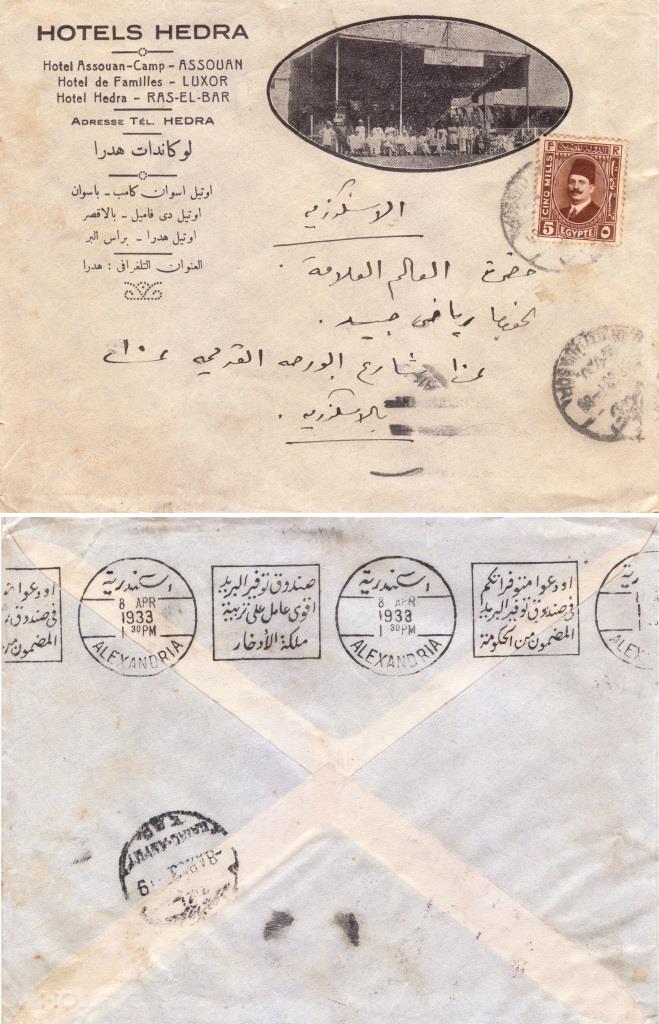 HOTELS HEDRA
Hotel Assouan-Camp - ASSOUAN
Hotel de Familles - LUXOR
Hotel Hedra - RAS-EL-BAR
ADRESSE TÉL. HEDRA
لوكاندات هدرا
اوتيل اسوان كامب - باسوان
اوتيل دى فاميل - بالاقصر
اوتيل هدرا - براس البر
العنوان التلغرافى : هدرا
CINQ MILLS
5 EGYPTE ٥
الاسكندرية
حضرة العالم العلامة
رياضى
شارع البورصه القديمه
بالاسكندريه .
او دعوا
فى صندوق
المضمون
اسكندرية
8 APR
1933
1 30PM
ALEXANDRIA
صندوق توفير البريد
اقوى عامل على تربية
ملكة الأدخار
اسكندرية
8 APR
1933
1 30PM
ALEXANDRIA
او دعوا متوفراتكم
فى صندوق توفير البريد
المضمون من الحكومة
رية
ALEX